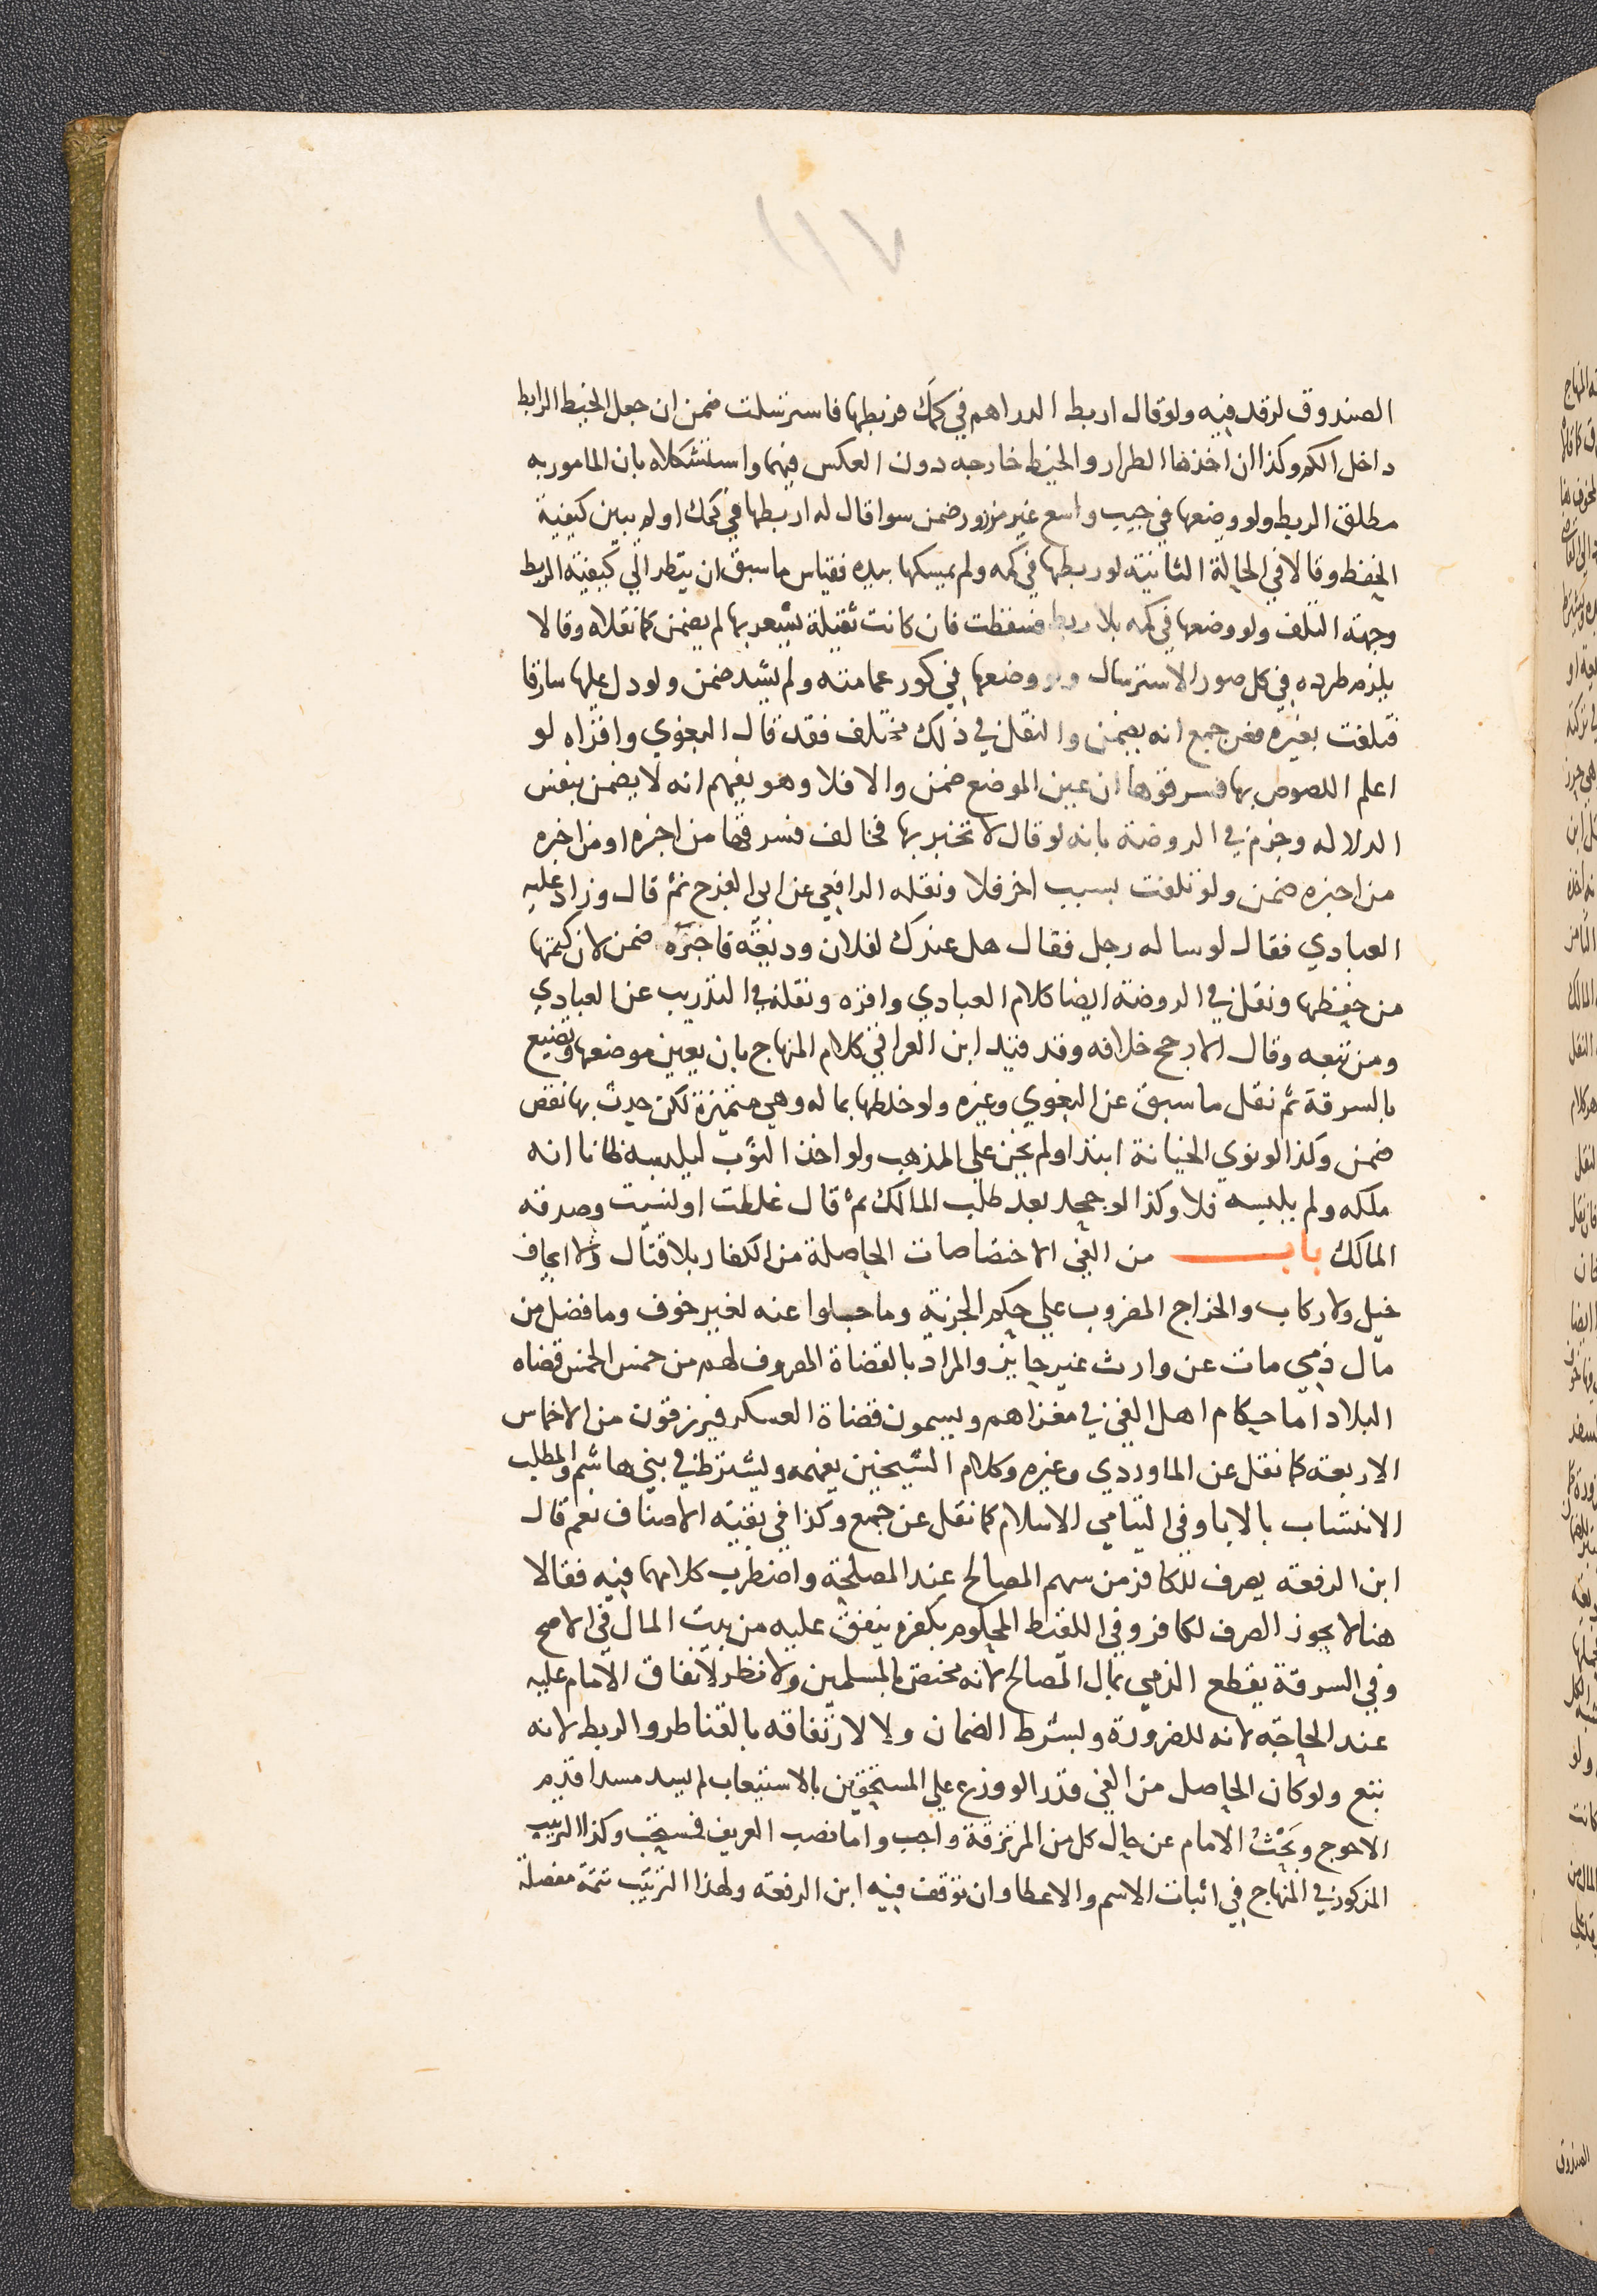 ١١٧
الصندوق لرقد فيه ولو قال اربط الدراهم في كمك فربطها فاسترسلت ضمن ان جعل الخيط الرابط
داخل الكم وكذا ان اخذها الطرار والخيط خارجه دون العكس فيهما واستشكلاه بان المامور به
مطلق الربط ولو وضعها في جيب واسع غير مزرور ضمن سوا قال له اربطها في كمك او لم يبين كيفية
الحفظ وقالا في الحالة الثانية لو ربطها في كمه ولم يمسكها بيده فقياس ما سبق ان ينظر الي كيفية الربط
وجهة التلف ولو وضعها في كمه بلا ربط فسقطت فان كانت ثقيلة يشعر بها لم يضمن كما نقلاه وقالا
يلزم طرده في كل صور الاسترسال ولو وضعها في كور عمامته ولم يشد ضمن ولو دل عليها سارقا
فتلفت بغيره فعن جمع انه يضمن والنقل في ذلك مختلف فقد قال البغوي واقراه لو
اعلم اللصوص بها فسرقوها ان عين الموضع ضمن والا فلا وهو يفهم انه لا يضمن بنفس
الدلاله وجزم في الروضة بانه لو قال لا تخبر بها فخالف فسرقها من اخبره او من اخبره
من اخبره ضمن ولو تلفت بسبب اخر فلا ونقله الرافعي عن ابي الفرج ثم قال وزاد عليه
العبادي فقال لو ساله رجل فقال هل عندك لفلان وديعة فاخبره ضمن لان كتمها
من حفظها ونقل في الروضة ايضا كلام العبادي واقره ونقله في التدريب عن العبادي
ومن تبعه وقال الارجح خلافه وقد قيد ابن العراقي كلام المنهاج بان يعين موضعها وتضيع
بالسرقة ثم نقل ما سبق عن البغوي وغيره ولو خلطها بماله وهي متميزة لكن حدث بها نقص
ضمن وكذا لو نوي الخيانة ابتدا ولم يخن علي المذهب ولو اخذ الثوب ليلبسه ظانا انه
ملكه ولم يلبسه فلا وكذا لو جحد بعد طلب المالك ثم قال غلطت او نسيت وصدقه
المالك باب من الفي الاختصاصات الحاصلة من الكفار بلا قتال ولا ايجاف
خيل ولا ركاب والخراج المضروب علي حكم الجزية وما جلوا عنه لغير خوف وما فضل من
مال ذمي مات عن وارث غير حايز والمراد بالقضاة المصروف لهم من خمس الخمس قضاه
البلاد اما حكام اهل الفي في مغزاهم ويسمون قضاة العسكر فيرزقون من الاخماس
الاربعة كما نقل عن الماوردي وغيره وكلام الشيخين يفهمه ويشترط في بني هاشم والمطلب
الانتساب بالابا وفي اليتامي الاسلام كما نقل عن جمع وكذا في بقية الاصناف نعم قال
ابن الرفعة يصرف للكافر من سهم المصالح عند المصلحة واضطرب كلامهما فيه فقالا
هنا لا يجوز الصرف لكافر وفي اللقيط المحكوم بكفره ينفق عليه من بيت المال في الاصح
وفي السرقة يقطع الذمي بمال المصالح لانه مختص بالمسلمين ولا نظر لانفاق الامام عليه
عند الحاجة لانه للضرورة وبشرط الضمان ولا لارتفاقه بالقناطر والربط لانه
تبع ولو كان الحاصل من الفي قدرا لو وزع علي المستحقين بالاستيعاب لم يسد مسدا قدم
الاحوج وبحث الامام عن حال كل من المرتزقة واجب واما نصب العريف فمستحب وكذا الترتيب
المذكور في المنهاج في اثبات الاسم والاعطا وان توقف فيه ابن الرفعة ولهذا الترتيب تتمة مفصلة